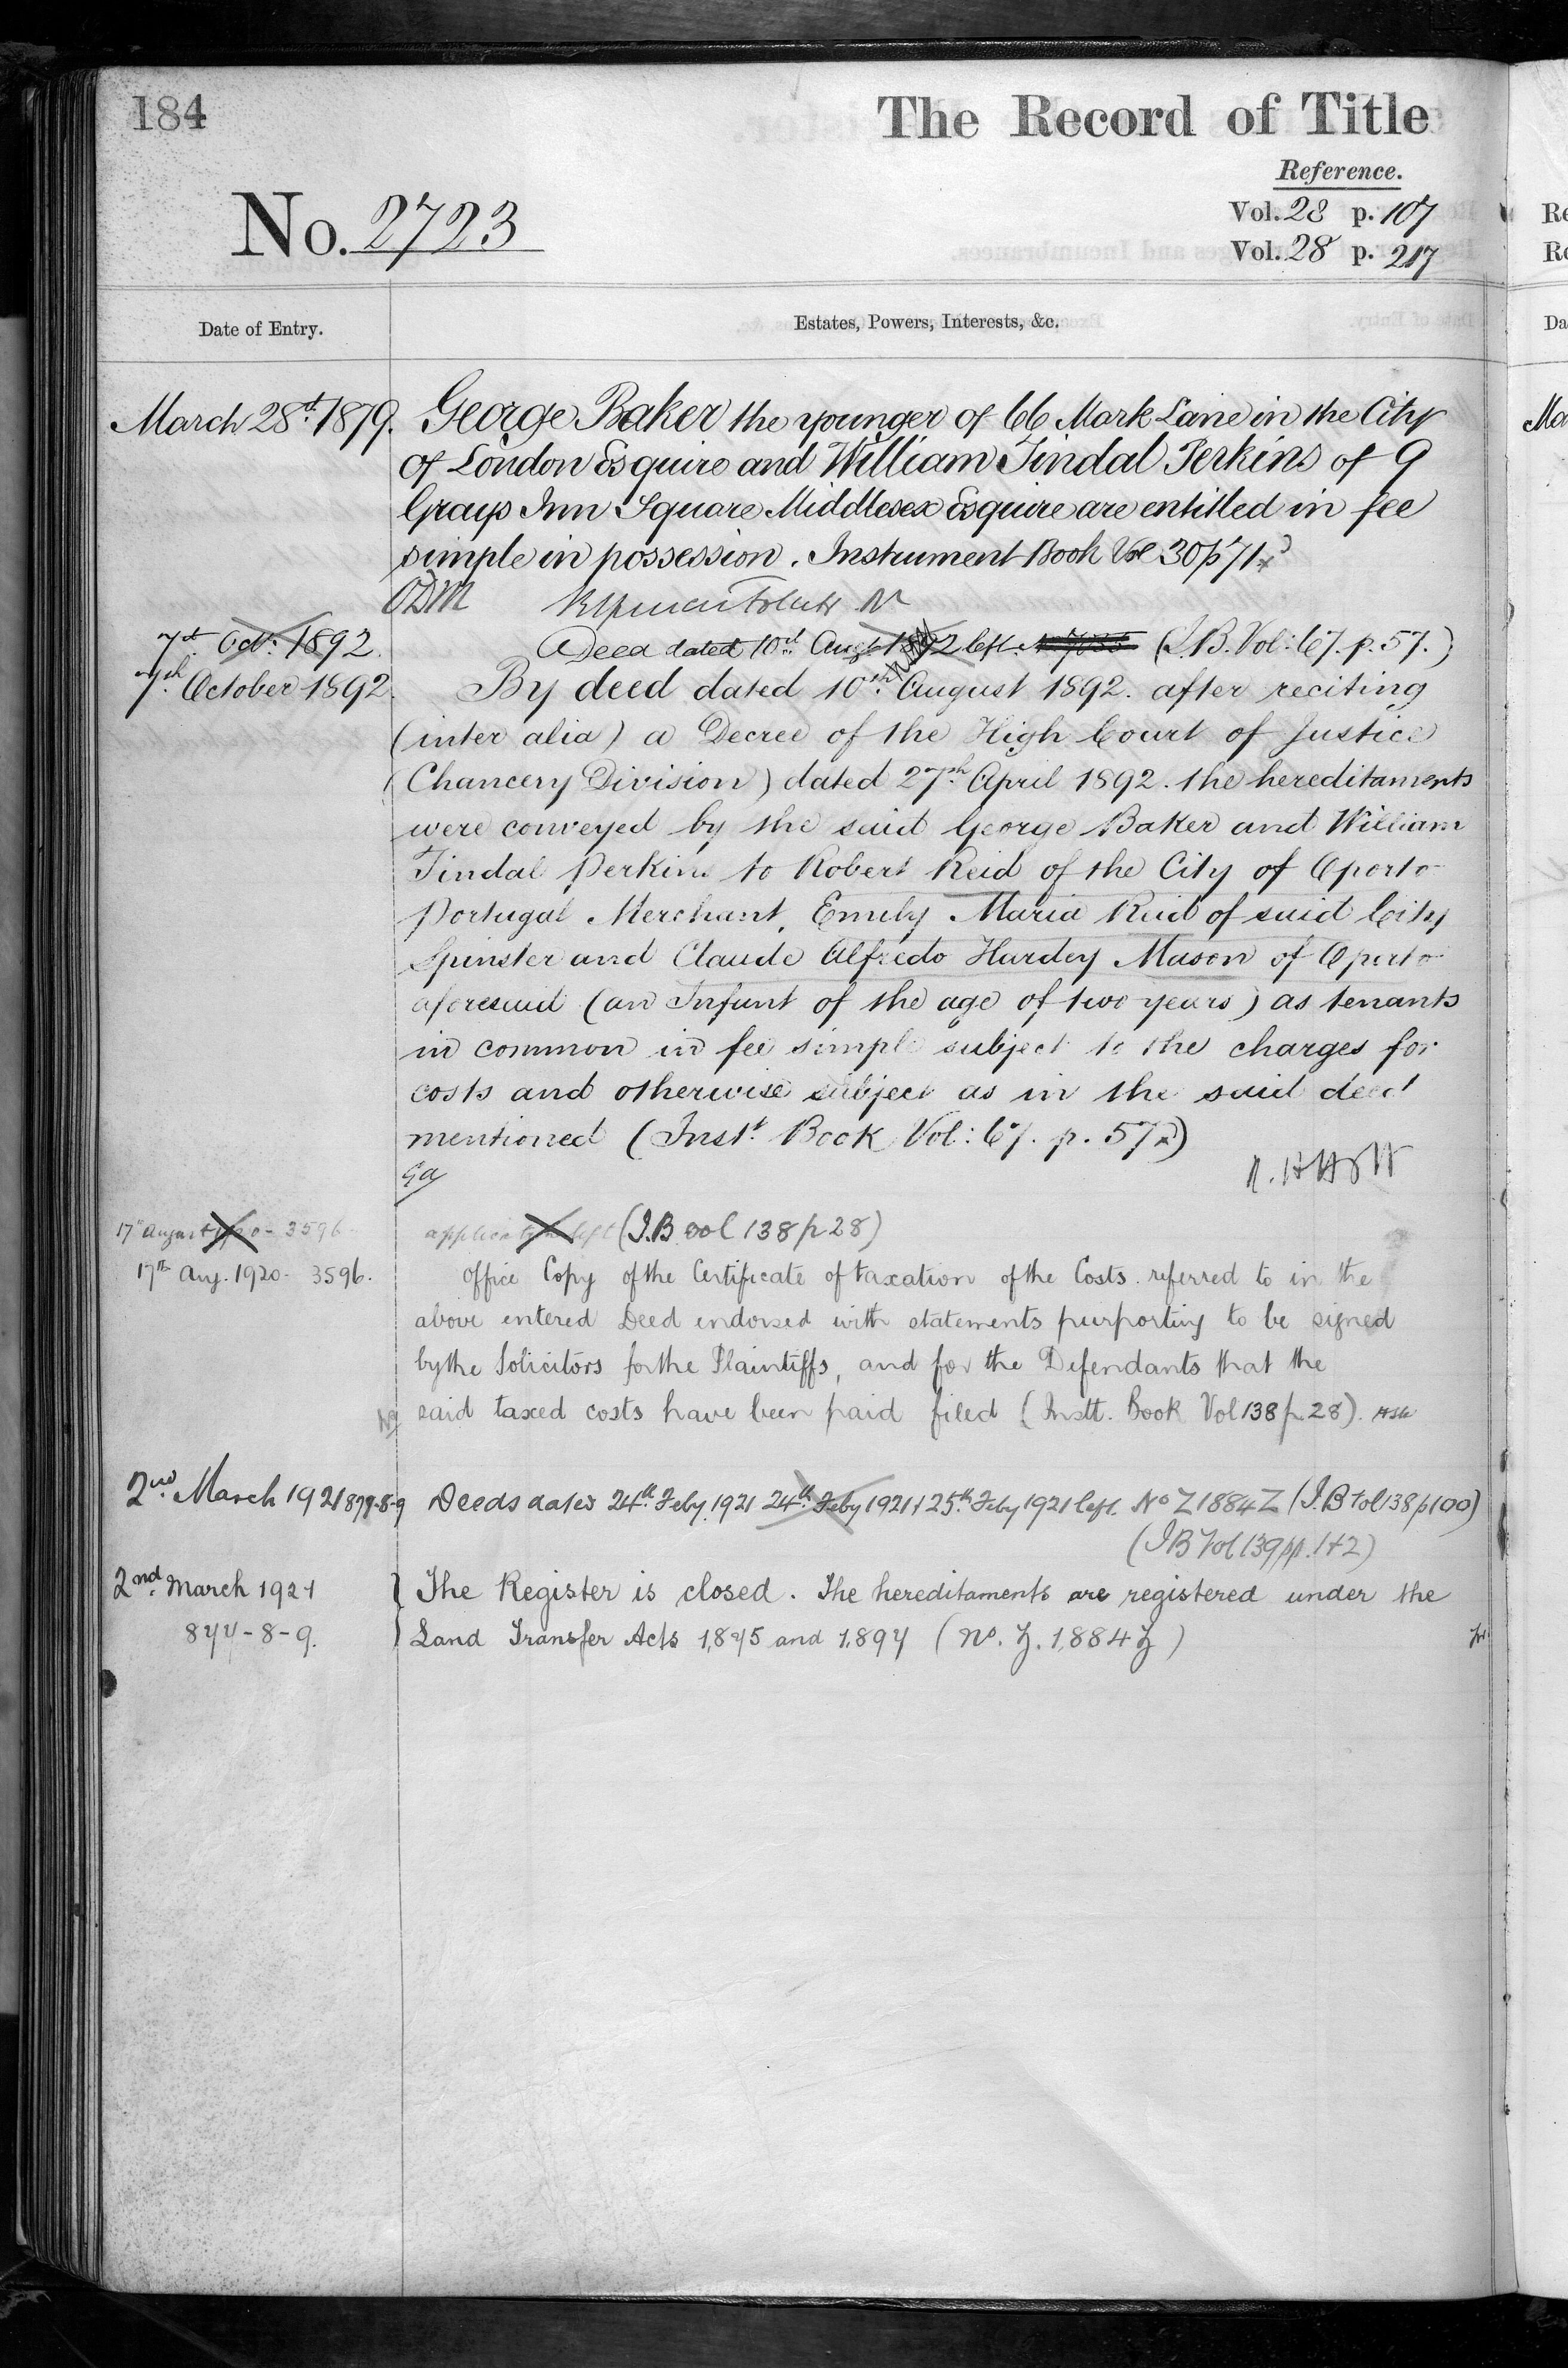 184
The Record of Title
Reference.
No. 2723
Vol. 28 p. 107
Vol. 28 p. 217
Date of Entry.
Estates, Powers, Interests, &c.
March 28th 1879. George Baker the younger of 66 Mark Lane in the City
of London Esquire and William Tindal Perkins of 9
Grays Inn Square Middlesex Esquire are entitled in fee
simple in possession. Instrument Book Vol 30 p 71
ODM
7th Oct: 1892. Deed dated 10th Augt 1892 left. (I.B. Vol: 67. p. 57.)
7th October 1892. By deed dated 10th August 1892. after reciting
(inter alia) a Decree of the High Court of Justice
(Chancery Division) dated 27th April 1892. the hereditaments
were conveyed by the said George Baker and William
Tindal Perkins to Robert Reid of the City of Oporto
Portugal Merchant, Emily Maria Reid of said City
Spinster and Claude Alfredo Hardey Mason of Oporto
aforesaid (an Infant of the age of two years) as tenants
in common in fee simple subject to the charges for
costs and otherwise subject as in the said deed
mentioned (Inst. Book Vol: 67. p. 57)
17th August 1920 - 3596 application left (I.B vol 138 p 28)
17th Aug. 1920 - 3596. Office Copy of the Certificate of taxation of the Costs referred to in the
above entered Deed endorsed with statements purporting to be signed
by the Solicitors for the Plaintiffs, and for the Defendants that the
said taxed costs have been paid filed (Instt. Book Vol 138 p. 28).
2nd March 1921 877-8-9 Deeds dated 24th Feby 1921 24th Feby 1921 & 25th Feby 1921 left. No Z1884Z (I.B Vol 138 p 100)
(IB Vol 139 pp. 1+2)
2nd March 1921 The Register is closed. The hereditaments are registered under the
877-8-9. Land Transfer Acts 1875 and 1897 (No. Z. 1884 Z)